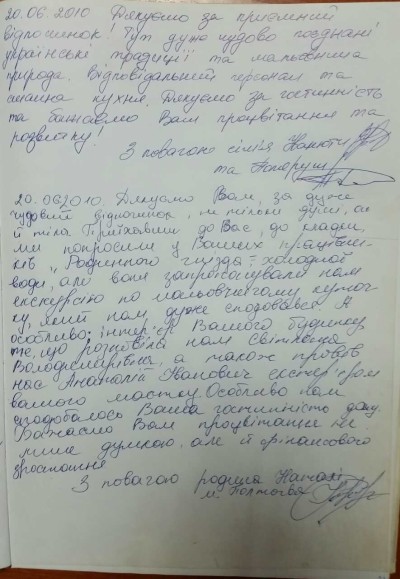 20.06.2010 Дякуємо за приємний
відпочинок! Тут дуже чудово поєднані
українські традиції та мальовнича
природа. Відповідальний персонал та
смачна кухня. Дякуємо за гостинність
та бажаємо Вам процвітання та
розвитку!
З повагою сім'я
та
20.06.2010. Дякуємо Вам, за дуже
чудовий відпочинок, не тільки душі, а
й тіла. Приїхавши до Вас, до
ми попросили у Ваших працівни-
ків „Родинного гнізда" холодної
води, але вони запропонували нам
екскурсію по мальовничому куточ-
ку, який нам дуже сподобався. А
особливо: інтер'єр Вашого будинку,
те, що розповіла нам Світлана
Володимирівна, а також провів
нас Анатолій Іванович екстер'єром
вашого маєтку. Особливо нам
сподобалось Ваша гостинність дому.
Бажаємо Вам процвітання не
лише думкою, але й фінансового
зростання.
З повагою родина
м. Полтава